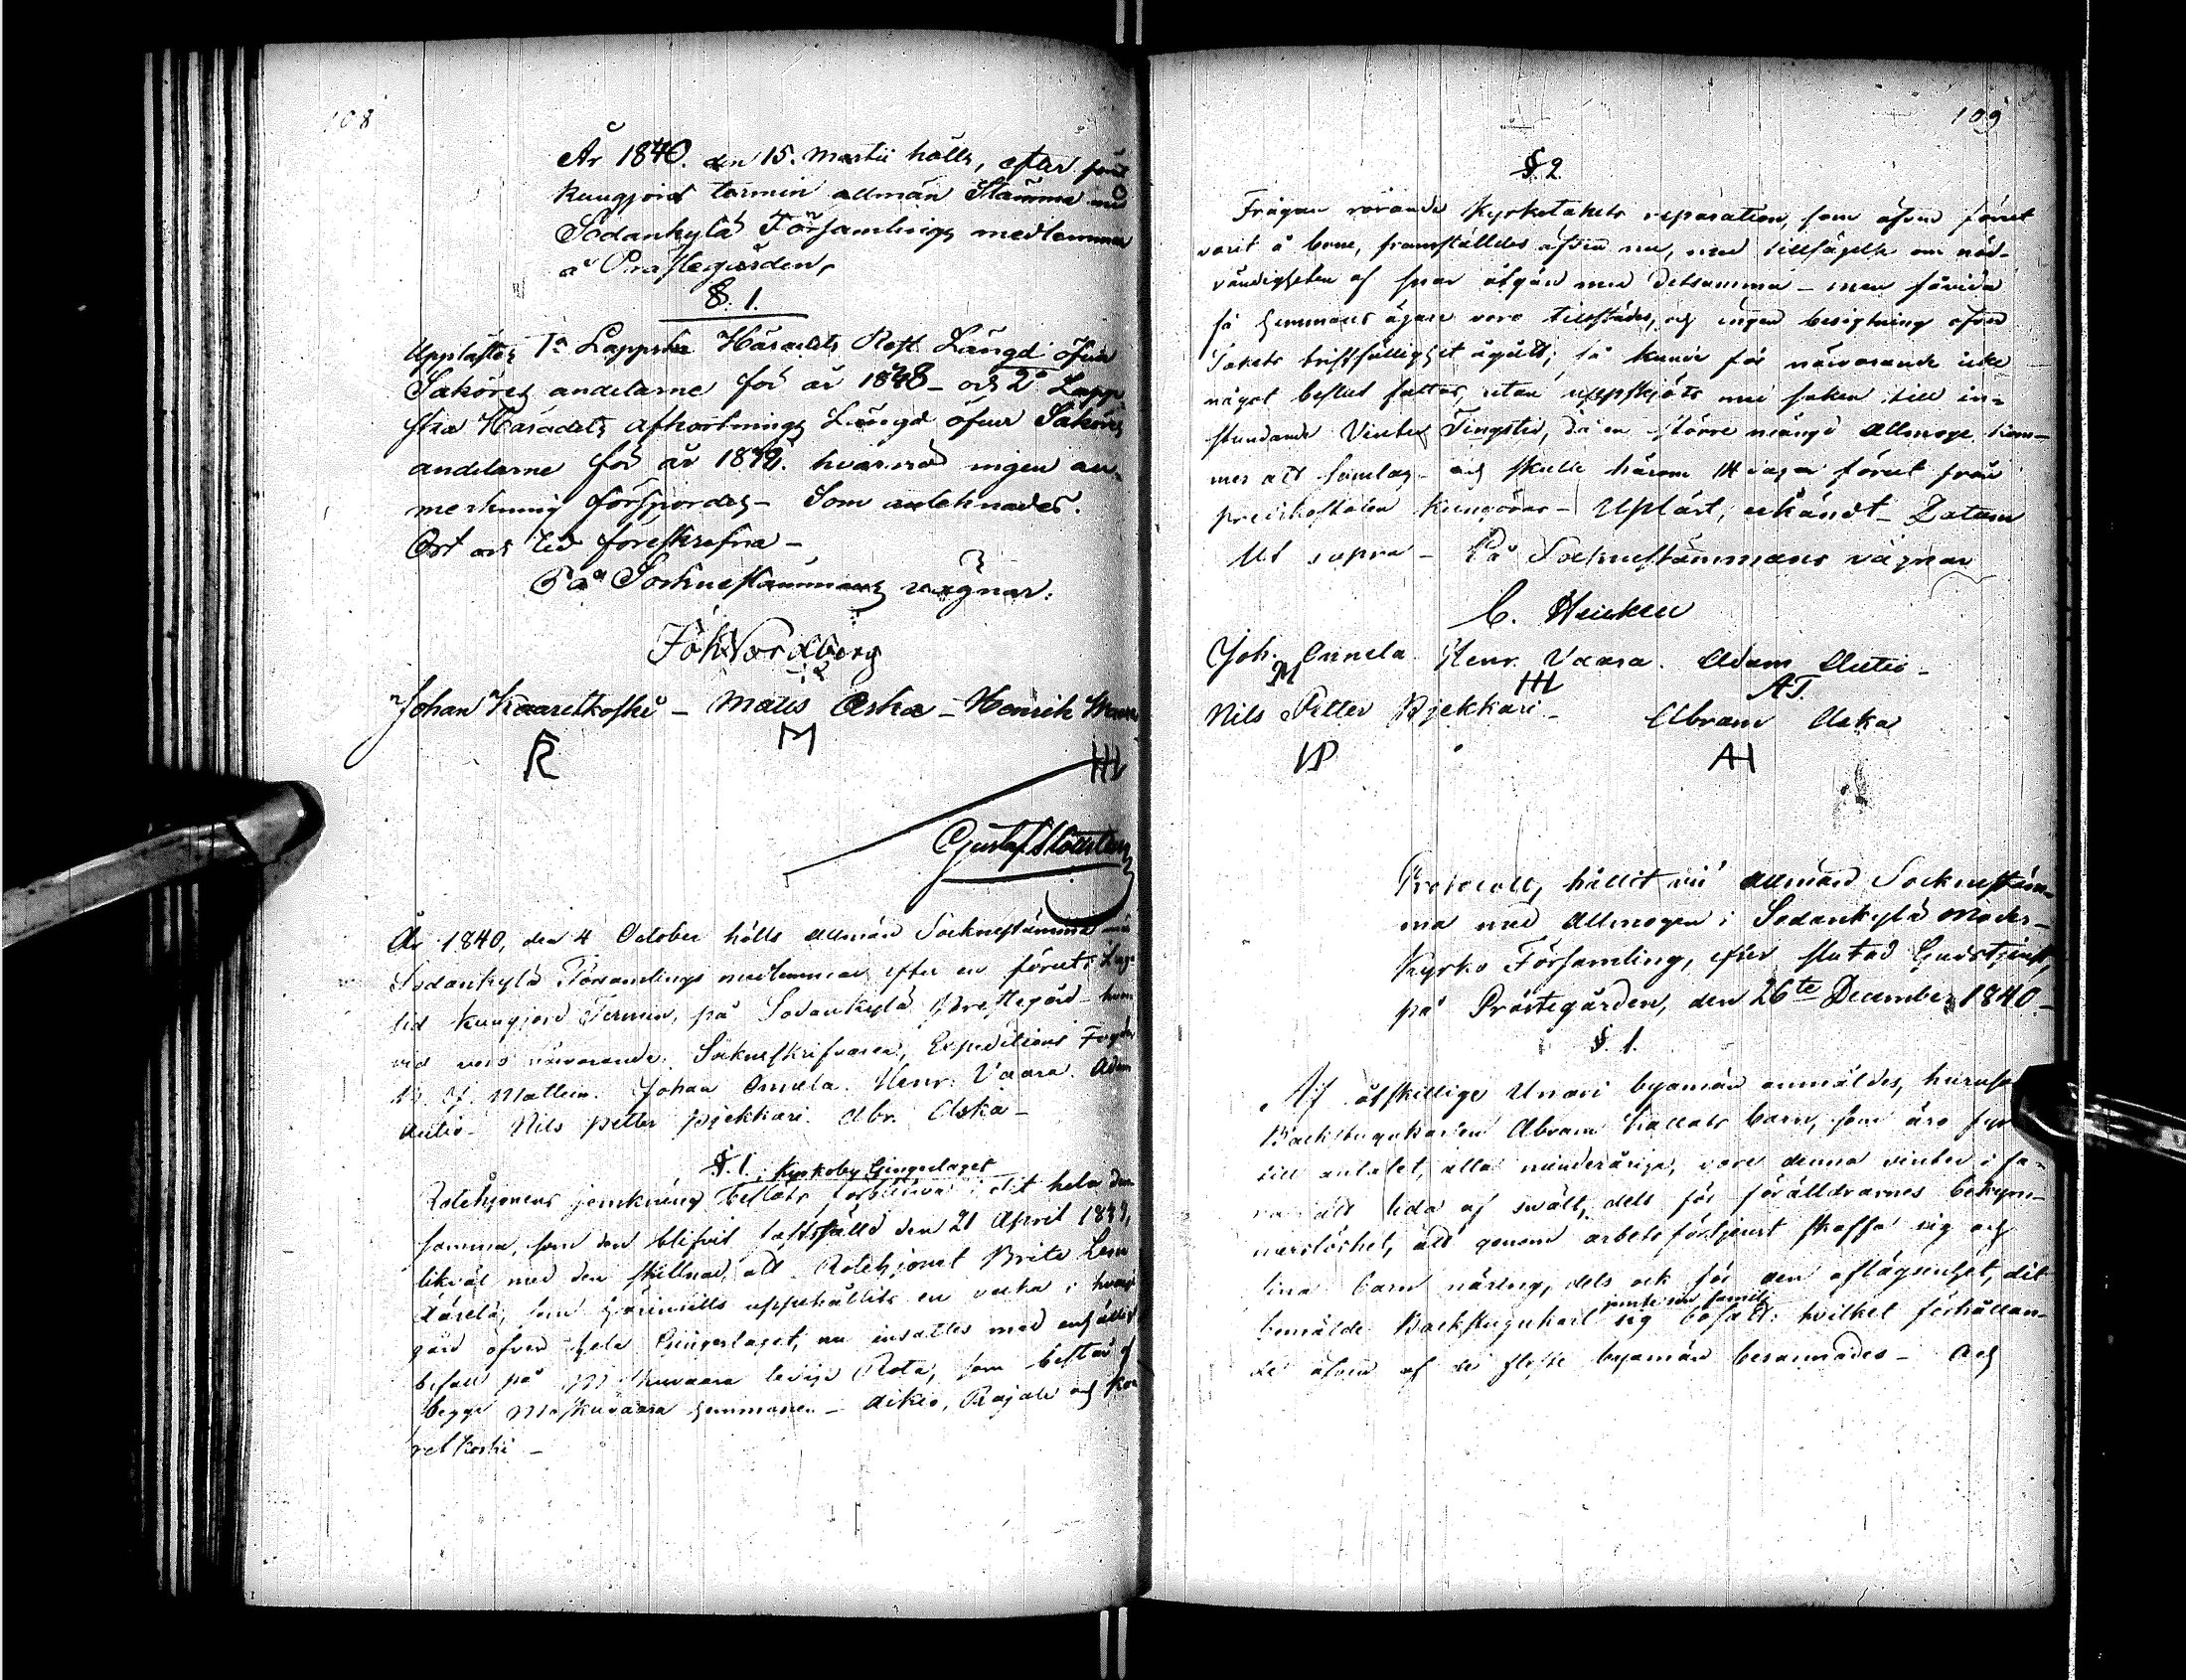 108
År 1840. den 15. Martii hölls, efter förut
kungjord termin allmän Stämma med
Sodankylä Församlings medlemmar
å Prästegården,
§. 1.
Upplästes 1o Lappska Häradets Rest Längd öfver
Saköres andelarne för år 1838 - och 2o Lapp
ska Häradets afkortnings Längd öfver Saköres
andelarne för år 1839. hvarvid ingen an-
merkning förspordes - Som antecknades.
Ort och tid föreskrefna -
På Socknestämmans vägnar.
Joh Nordberg
Johan Kaaretkoski - Matts Aska - Henrik
R M HH
Gustaf
År 1840, den 4 October hölls allmän Socknestämma med
Sodankylä Församlings medlemmar efter en förut i Lag-
tid kungjord Termin, på Sodankylä Prestegård - hvar
vid voro närvarande: Sockneskrifvaren, Expeditions Fogden
Mattein. Johan Onnela. Henr. Vaara. Adam
Autio - Nils Petter Pjekkari. Abr. Aska -
§. 1. Kyrkoby Gingerlaget
Rotehjonens jemkning beslöts förblifva i ett hela den
samma, som den blifvit fastställd den 21 April 1839,
likväl med den skillnad, att Rotehjonet Brita
som härintills uppehållits en vecka i hvarje
gård öfver hela Gingerlaget, nu insattes med
på lediga Rota, som består af
begge Moskuvaara hemmanen - Aikio, Rajala och Kaa
retkoski -
109
§. 2.
Frågan rörande Kyrkotakets reparation, som äfven förut
varit å bane, framställdes äfven nu, med tillsägelse om nöd-
vändigheten af snar åtgärd med detsamma - men som
få hemmans ägare voro tillstädes, och ingen besigtning öfver
Takets bristfällighet ägt; så kunde för närvarande icke
något beslut fattas, utan uppskjöts med saken till in-
stundande Vinter Tingstid, då en större mängd Allmoge kom-
mer att samlas - och skulle härom 14 dagar förut från
predikstolen kungöras - Uplärt, erkändt - Datum
Ut supra - På Socknestämmans vägnar
C. Heicken
Joh. Onnela Henr. Vaara. Adam Autio -
M HH AT.
Nils Petter Pjekkari - Abram Aska
NP AH
Protocoll, hållit vid allmän Socknestäm-
ma med Allmogen i Sodankylä Moder-
Kyrko Församling, efter slutad Gudstjenst,
på Prästegården, den 26te December 1840. -
§. 1.
Af åtskillige Unari byamän anmäldes, hurusom
Backstugukarlen Abram barn, som äro fyra
till antalet, alla minderåriga, vore denna vinter i fa-
ra att lida af svält, dels för föräldrarnes bekym-
merslöshet, att genom arbetsförtjenst skaffa sig och
sina barn näring, dels ock för den aflägsenhet, dit
bemälde Backstugukarl jemte sin familj sig bosatt: hvilket förhållan-
de äfven af de fleste byamän besannades - och